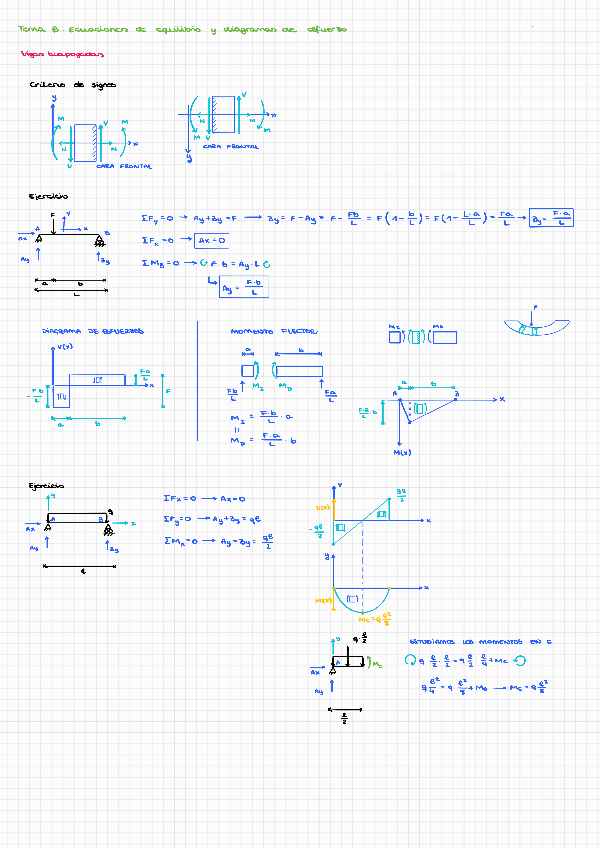 Tema 8. Ecuaciones de equilibrio y diagramas de esfuerzo
Vigas biapoyadas
Criterio de signos
y
M
V
M
N
N
x
V
CARA FRONTAL
V
N
N
x
M
V
M
y
CARA FRONTAL
Ejercicio
F
y
x
Ax
A
B
Ay
By
a
b
L
ΣFy=0 → Ay+By=F → By = F-Ay = F- Fb/L = F(1- b/L) = F(1- L-a/L) = Fa/L → By = F·a/L
ΣFx=0 → Ax=0
ΣMB=0 → F·b = Ay·L
Ay = F·b/L
DIAGRAMA DE ESFUERZOS
V(x)
-Fb/L
Fa/L
F
x
a
b
MOMENTO FLECTOR
a
b
MI
MD
Fb/L
Fa/L
MI = F·b/L · a
=
MD = F·a/L · b
MI
MD
F
a
b
A
B
x
M(x)
Ejercicio
y
q
A
B
x
Ax
Ay
By
ℓ
ΣFx=0 → Ax=0
ΣFy=0 → Ay+By = qℓ
ΣMA=0 → Ay=By= qℓ/2
y
V(x)
qℓ/2
-qℓ/2
x
y
x
M(x)
Mc=q ℓ²/8
y
q ℓ/2
A
Mc
Ax
Ay
ℓ/2
ESTUDIAMOS LOS MOMENTOS EN C
q ℓ/2 · ℓ/2 = q ℓ/2 · ℓ/4 + Mc
q ℓ²/4 = q ℓ²/8 + Mc → Mc = q ℓ²/8